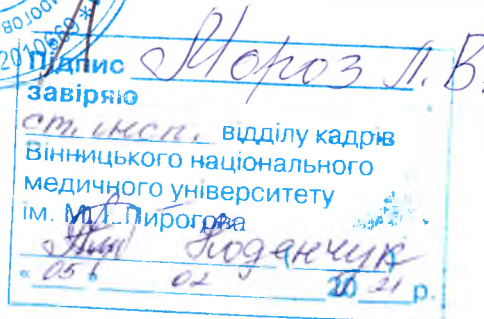 Підпис Мороз Л. В.
завіряю
ст. інсп. відділу кадрів
Вінницького національного
медичного університету
ім. М.І. Пирогова
Коданчук
«05» 02 2021 р.